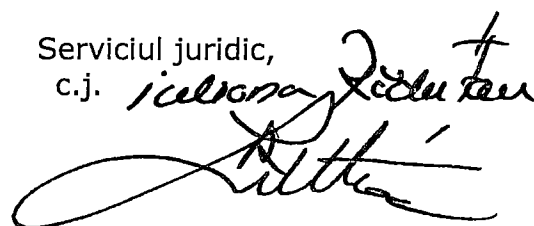 Serviciul juridic,
c.j. iuliana Răduțan